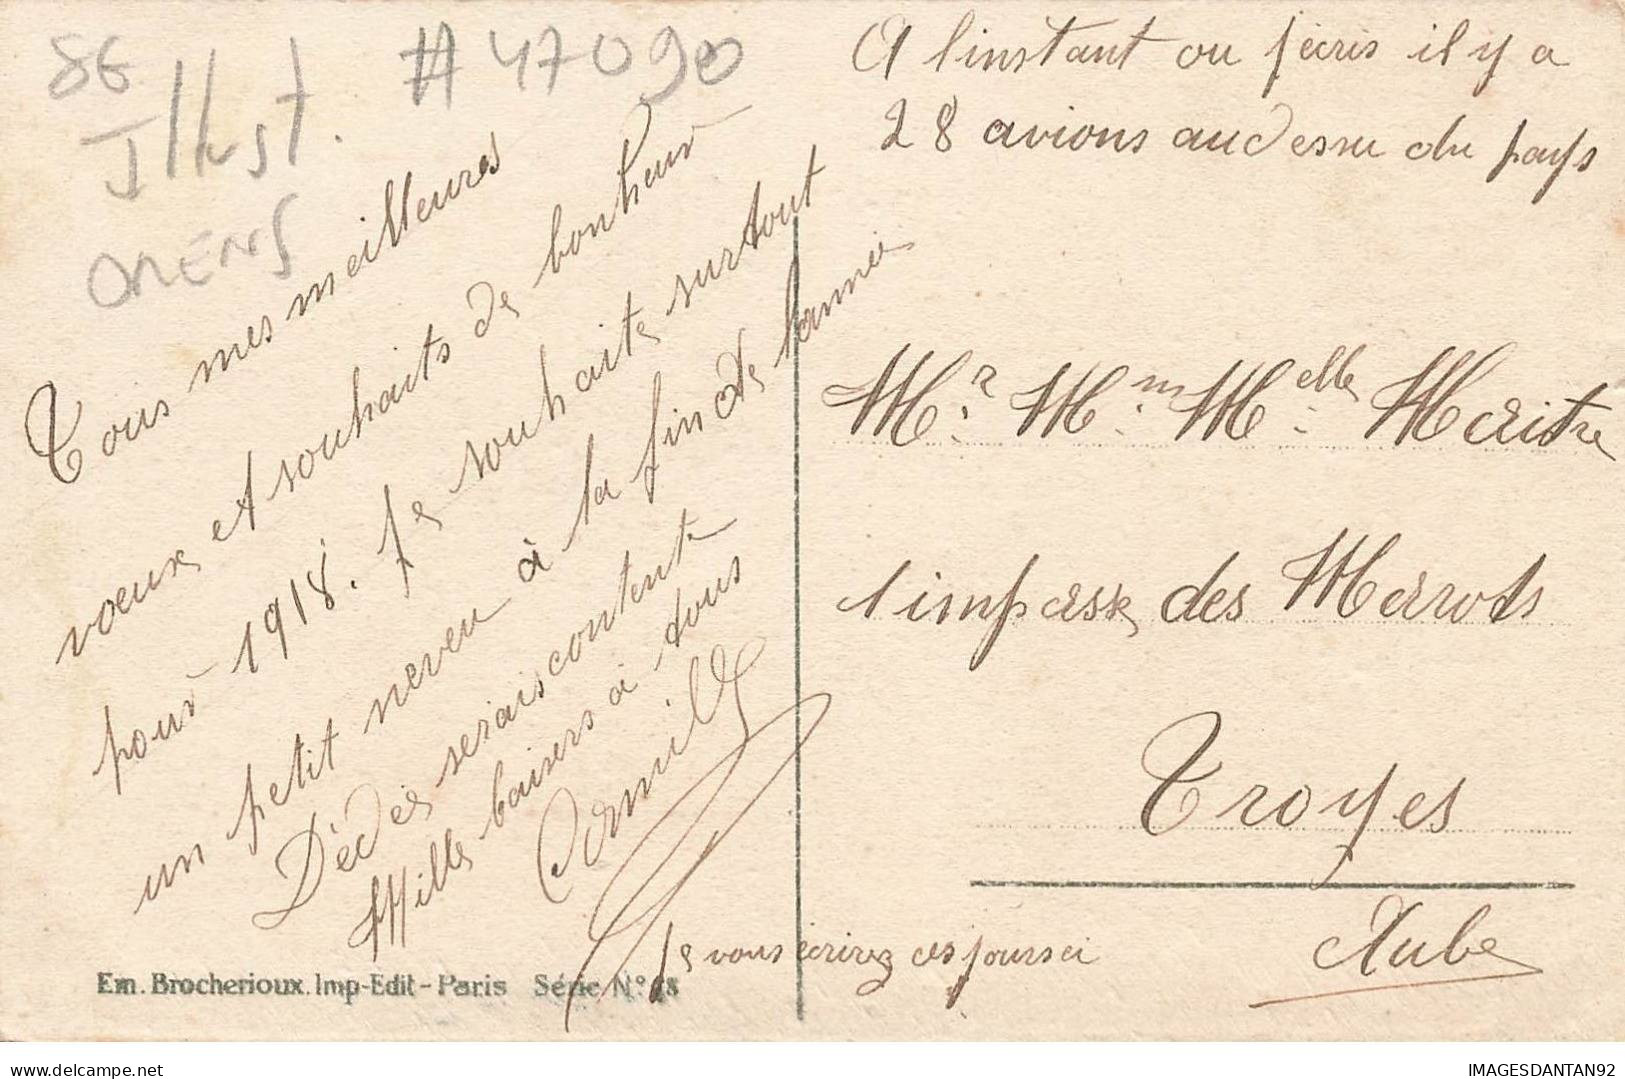 86 # 47090
Illust.
ORENS
Tous mes meilleures
voeux et souhaits de bonheur
pour 1918. Je souhaite surtout
un petit neveu à la fin de l'année
Dédée serais contente
Mille baisers à tous
Camille
Je vous écrirez ces jours ci
A l'instant ou j'ecris il y a
28 avions audessu du pays
Mr. Mm. Melle. Maitre
1 impasse des Marots
Troyes
Aube
Em. Brocherioux. Imp-Edit - Paris Série N°
IMAGESDANTAN92
www.delcampe.net